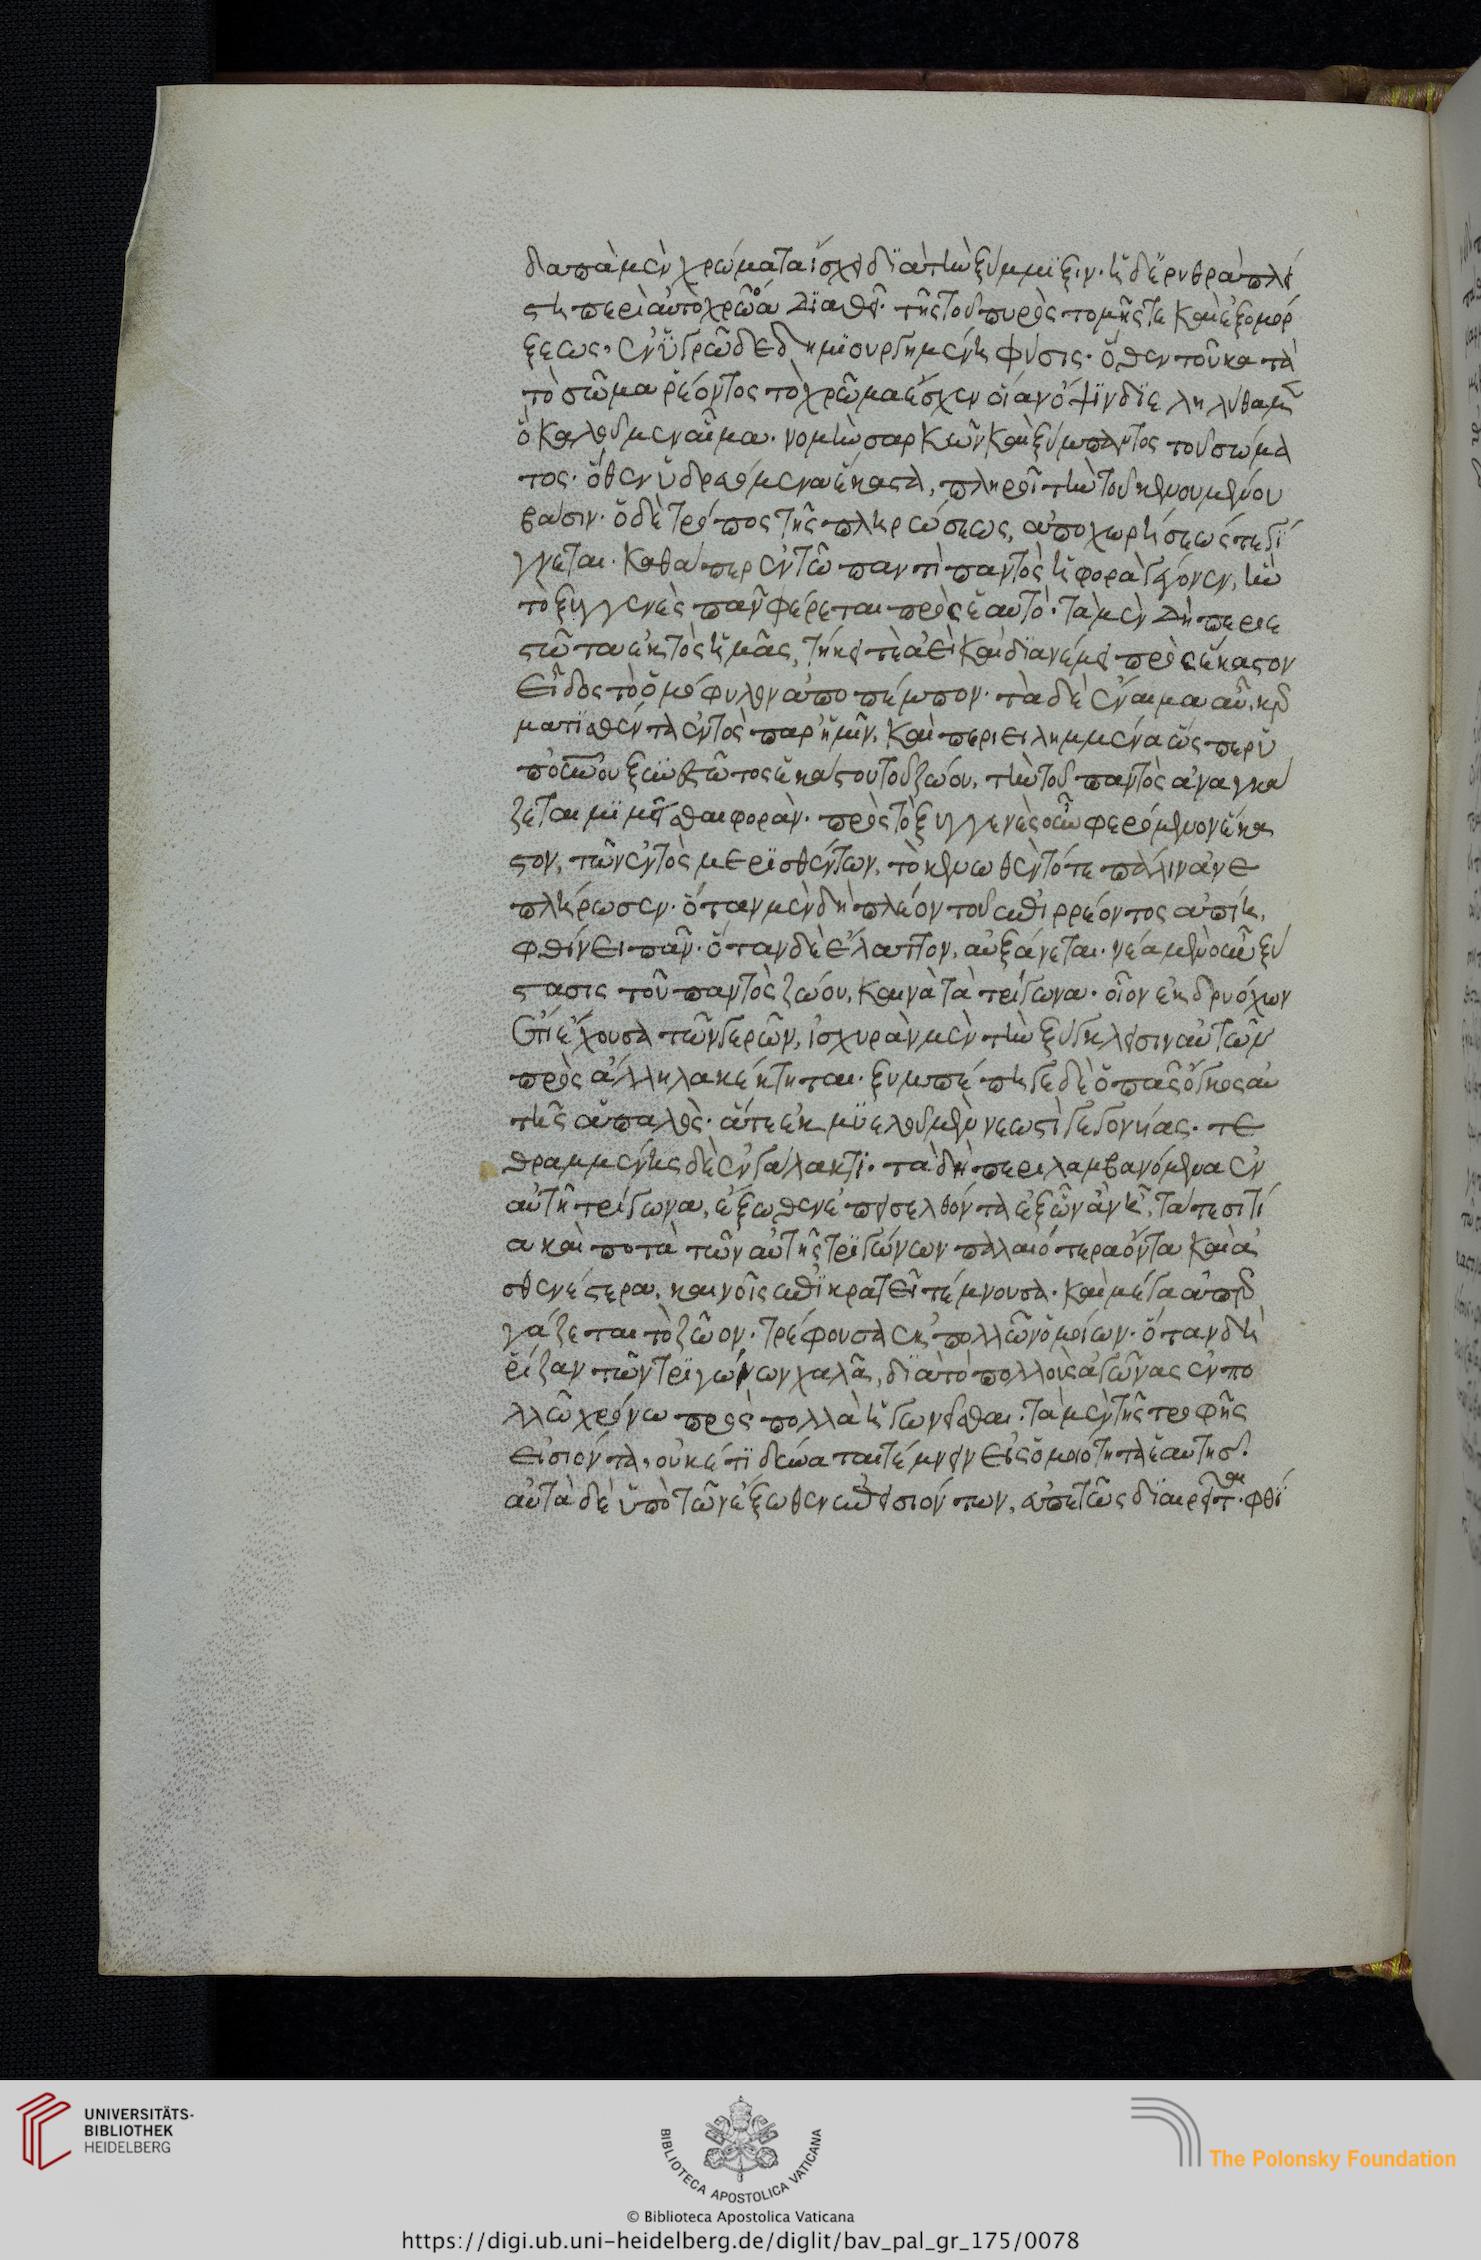 δαπὰ μὲν χρώματα ἴσχει διὰ τὴν ξύμμιξιν· ἡ δ' ἐρυθρὰ πλεί
στη περὶ αὐτὸ χρῶα διαθεῖ· τῆς τοῦ πυρὸς τομῆς τε καὶ ἐξομόρ
ξεως· ἐν ὑγρῶ δεδημιουργημένη φύσις· ὅθεν τοῦ κατὰ
τὸ σῶμα ῥέοντος τὸ χρῶμα ἔσχεν οἵαν ὄψιν διεληλύθαμεν
ὃ καλοῦμεν αἷμα· νομὴν σαρκῶν καὶ ξύμπαντος τοῦ σώμα
τος· ὅθεν ὑδρευόμενα ἕκαστα, πληροῖ τὴν τοῦ κενουμένου
βάσιν· ὁ δὲ τρόπος τῆς πληρώσεως, ἀποχωρήσεώς τε γί
γνεται· καθάπερ ἐν τῶ παντὶ παντὸς ἡ φορὰ γέγονεν, ἣν
τὸ ξυγγενὲς πᾶν φέρεται πρὸς ἑαυτό· τὰ μὲν δὴ περιε
στῶτα ἐκτὸς ἡμᾶς, τήκει τε ἀεὶ καὶ διανέμει πρὸς ἕκαστον
εἶδος τὸ ὁμόφυλον ἀποπέμπον· τὰ δὲ ἔναιμα αὖ, κερ
ματισθέντα ἐντὸς παρ' ἡμῖν, καὶ περιειλημμένα ὥσπερ ὑ
π' οὐνοῦ ξυνεστῶτος ἑκάστου τοῦ ζώου, τὴν τοῦ παντὸς ἀναγκά
ζεται μιμεῖσθαι φοράν· πρὸς τὸ ξυγγενὲς οὖν φερόμενον ἕκα
στον, τῶν ἐντὸς μερισθέντων, τὸ κενωθὲν τότε πάλιν ἀνε
πλήρωσεν· ὅταν μὲν δὴ πλέον τοῦ ἐπιρρέοντος ἀπίη,
φθίνει πᾶν· ὅταν δὲ ἔλαττον, αὐξάνεται· νέα μὲν οὖν ξύ
στασις τοῦ παντὸς ζώου, καινὰ τὰ τρίγωνα· οἷον ἐκ δρυόχων
ἔτι ἔχουσα τῶν γερῶν, ἰσχυρὰν μὲν τὴν ξύγκλεισιν αὐτῶν
πρὸς ἄλληλα κέκτηται· ξυμπέπηγε δὲ ὁ πᾶς ὄγκος αὐ
τῆς ἁπαλὸς· ἅτε ἐκ μυελοῦ μὲν νεωστὶ γεγονυίας· τε
θραμμένης δὲ ἐν γάλακτι· τὰ δὴ περιλαμβανόμενα ἐν
αὐτῆ τρίγωνα, ἔξωθεν ἐπεισελθόντα ἐξ ὧν ἂν ἦ, τά τε σιτί
α καὶ ποτὰ τῶν αὐτῆς τριγώνων παλαιότερα ὄντα καὶ ἀ
σθενέστερα, καινοῖς ἐπικρατεῖ τέμνουσα· καὶ μέγα ἀπερ
γάζεται τὸ ζῶον· τρέφουσα ἐκ πολλῶν ὁμοίων· ὅταν δὴ
ῥίζαν τῶν τριγώνων χαλᾶ, διὰ τὸ πολλοὺς ἀγῶνας ἐν πο
λλῶ χρόνω πρὸς πολλὰ ἠγωνῆσθαι· τὰ μὲν τῆς τροφῆς
εἰσιόντα, οὐκέτι δύναται τέμνειν εἰς ὁμοιότητα ἑαυτῆς·
αὐτὰ δὲ ὑπὸ τῶν ἔξωθεν ἐπεισιόντων, εὐπετῶς διαιρεῖται· φθί
UNIVERSITÄTS-
BIBLIOTHEK
HEIDELBERG
BIBLIOTECA APOSTOLICA VATICANA
The Polonsky Foundation
© Biblioteca Apostolica Vaticana
https://digi.ub.uni-heidelberg.de/diglit/bav_pal_gr_175/0078